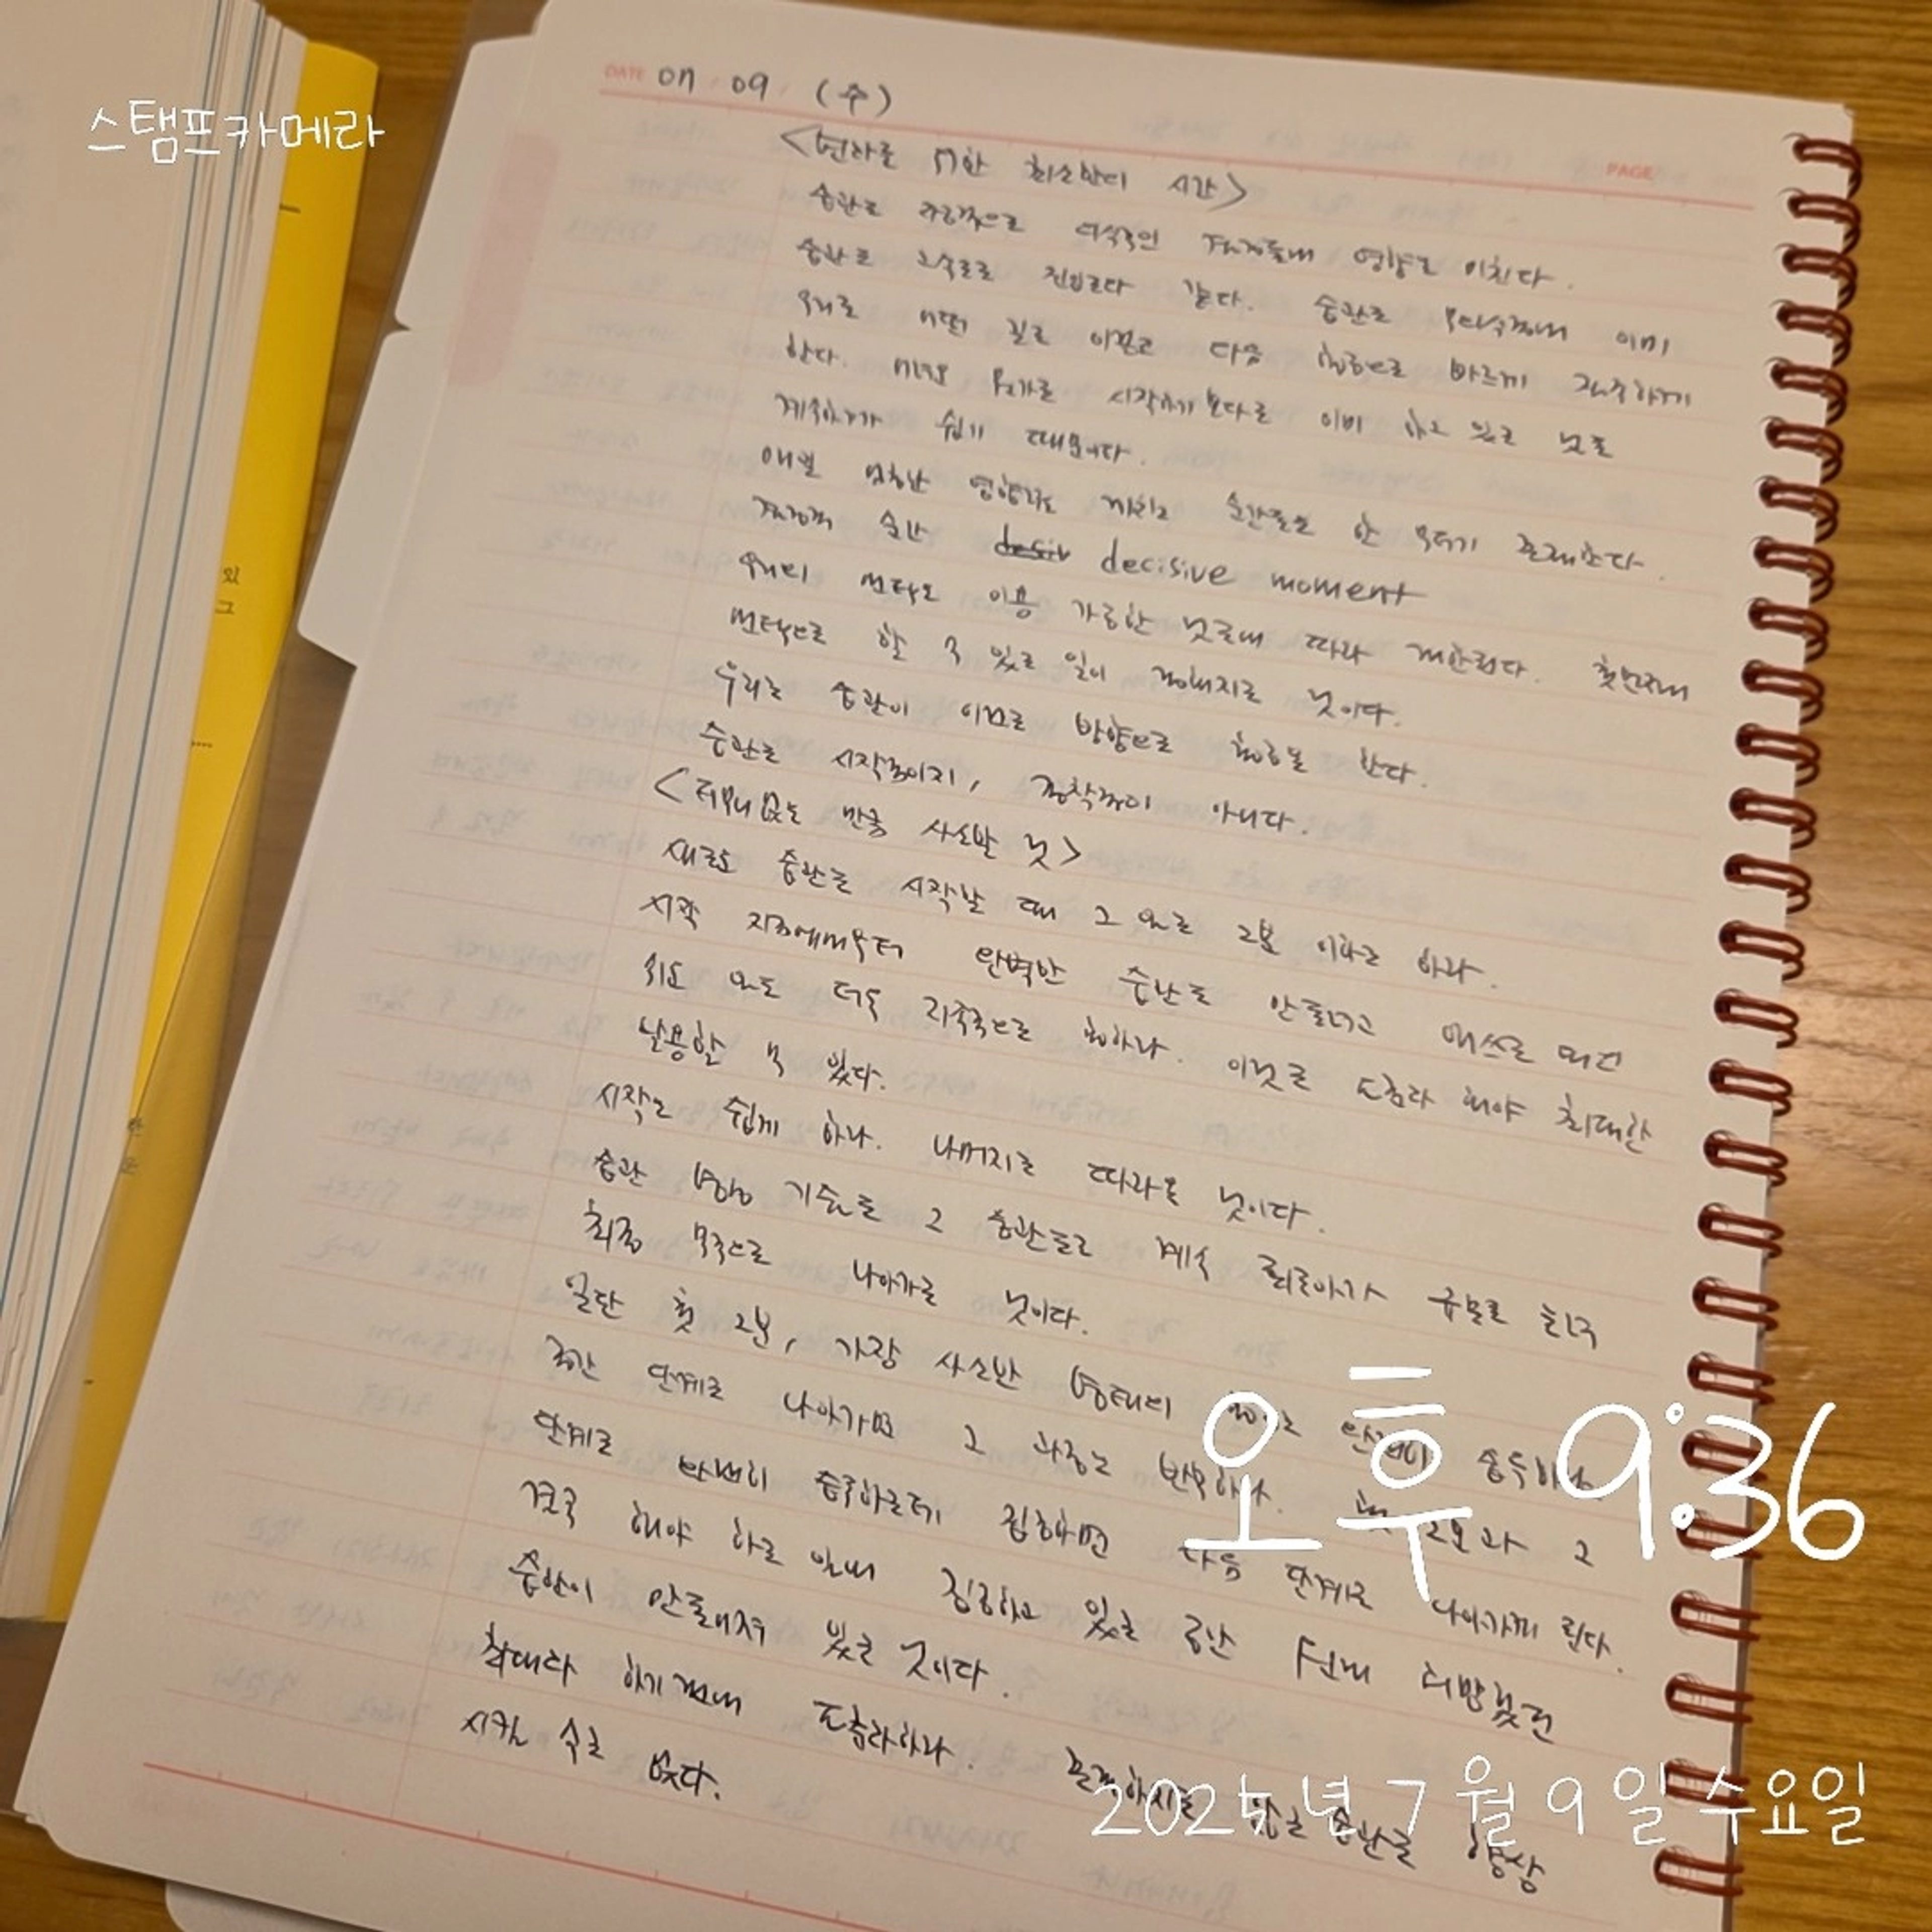 스탬프카메라
DATE 07. 09. (수)
PAGE
<변화를 위한 최소한의 시간>
습관은 자동적으로 의식적인 결정들에 영향을 미친다.
습관은 고속도로 진입로다 같다. 습관은 무의식중에 이미
우리를 어떤 길로 이끌고 다음 행동으로 빠르게 질주하게
한다. 새로운 뭔가를 시작하기보다는 이미 하고 있는 것을
계속하기가 쉽기 때문이다.
매일 엄청난 영향력을 끼치는 순간들은 한 무더기 존재한다.
결정적 순간 decisive moment
우리의 선택은 이용 가능한 것들에 따라 제한된다. 첫번째
선택으로 할 수 있는 일이 정해지는 것이다.
우리는 습관이 이끄는 방향으로 행동을 한다.
습관은 시작점이지, 종착점이 아니다.
<더없는 만큼 사소한 것>
새로운 습관을 시작할 때 그 일을 2분 이하로 하라.
시작 지점에서부터 완벽한 습관을 만들려고 애쓰는 대신
쉬운 일을 더욱 지속적으로 행하라. 이것은 표준화 해야 최대한
활용할 수 있다.
시작은 쉽게 하라. 나머지는 따라올 것이다.
습관 형성 기술은 그 습관들로 계속 되돌아가 규모를 늘려
최종 목적으로 나아가는 것이다.
일단 첫 2분, 가장 사소한 형태의 행동을 완전히 습득하라.
중간 단계로 나아가며 그 과정을 반복하라. 첫 2분과 그
단계를 완전히 습득하는데 집중하면 다음 단계로 나아가게 된다.
결국 해야 하는 일에 집중하고 있는 동안 처음에 희망했던
습관이 만들어져 있을 것이다.
최대화 하기 전에 표준화하라. 존재하지 않는 습관을 향상
시킬 수는 없다.
오후 9:36
2025년 7월 9일 수요일